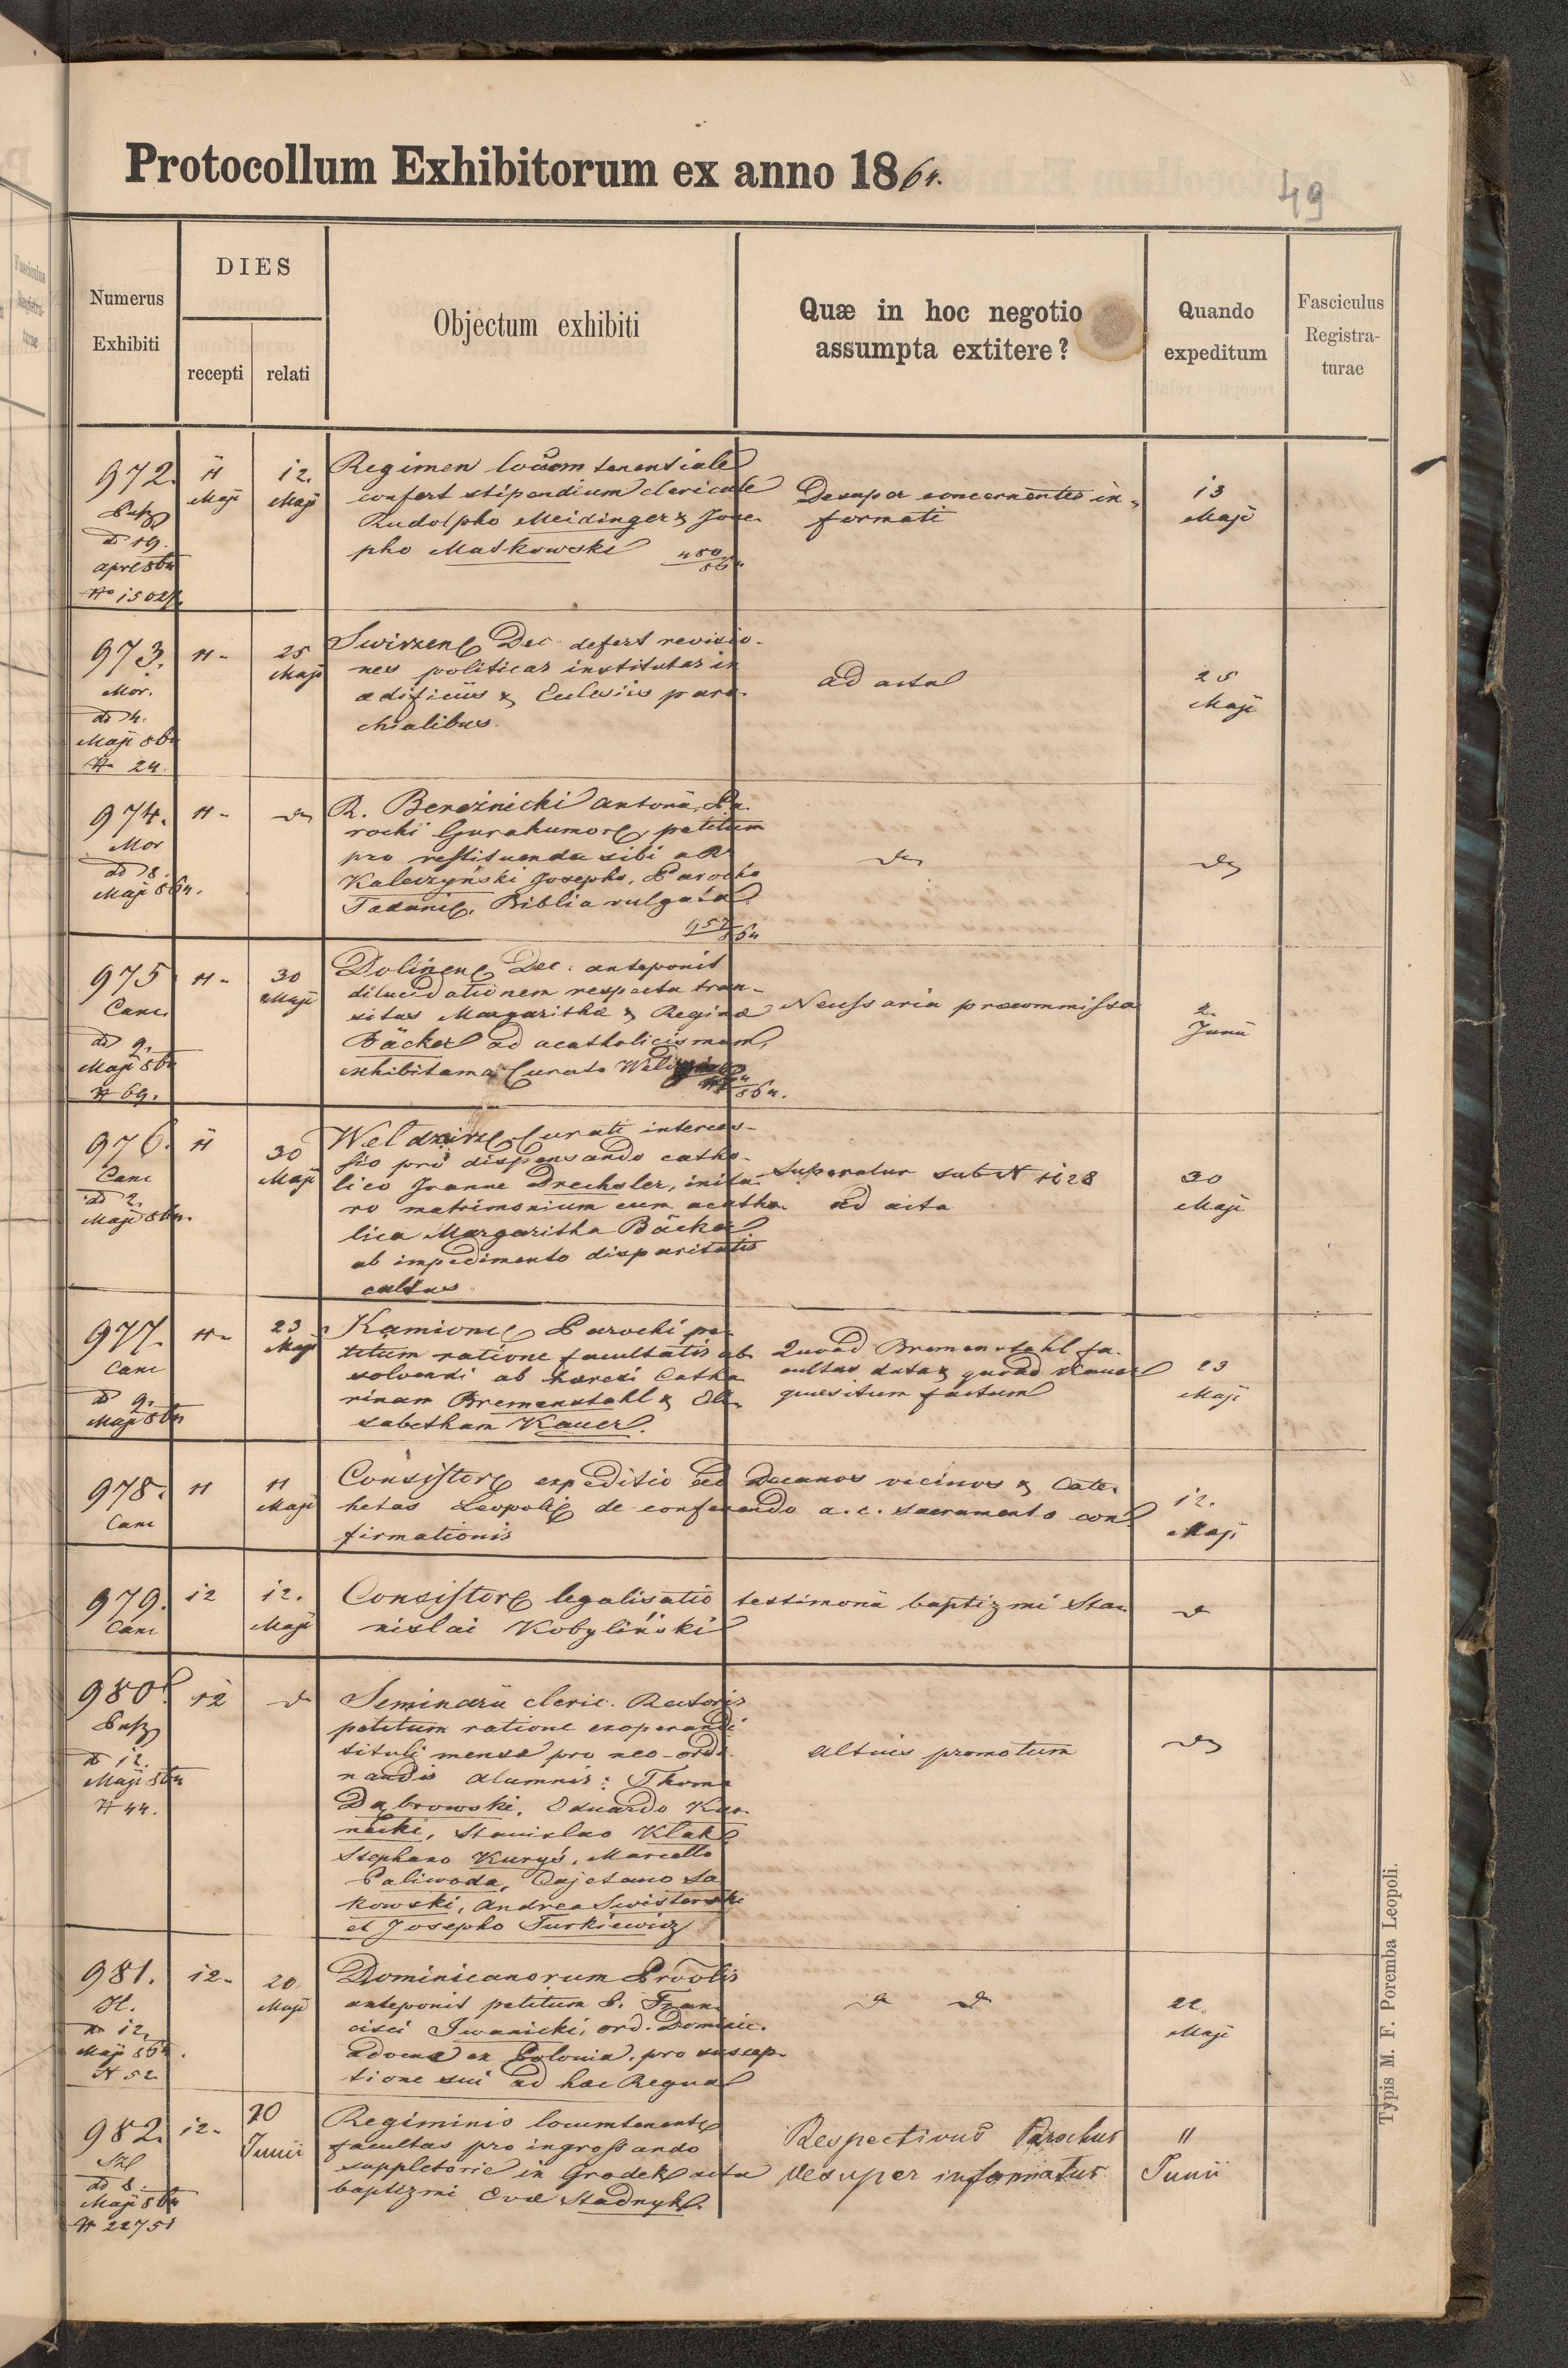 Protocollum Exhibitorum ex anno 1864.
49
Numerus Exhibiti
DIES
recepti
relati
Objectum exhibiti
Quæ in hoc negotio
assumpta extitere?
Quando
expeditum
Fasciculus
Registra-
turae
972.
dd 19.
apr 864
N° 15027.
11
Maji
12.
Maji
Regimen locum tenentiale
confert stipendium clericale
Rudolpho Meidinger & Jose-
pho Maskowski 480/864
Desuper concernentes in-
formati
13
Maji
973.
Mor.
dd 4.
Maji 864
N 24.
11-
25
Maji
Swirzen Dec. defert revisio-
nes politicas institutas in
ædificiis & Ecclesiis paro-
chialibus.
ad acta
25
Maji
974.
Mor
dd 8.
Maji 864.
11-
R. Bereźnicki Antonii, Pa-
rochi Gurahumor, petitum
pro restituenda sibi a R.
Kaleczyński Josepho, Parocho
Tadani, Biblia vulgata
957/864
975
Canc.
dd 9.
Maji 864
N 69.
11-
30
Maji
Dolinen Dec. anteponit
dilucidationem respectu tran-
situs Margarithæ & Reginæ
Bäcker ad acatholicismum,
exhibitam a Curato
864.
Necessaria præcommissa
2.
Junii
976.
Canc
dd 2.
Maji 864.
11
30
Maji
Weldzirz Curati interces-
sio pro dispensando catho-
lico Joanne Drechsler, initu-
ro matrimonium cum acatho-
lica Margaritha Bäcker
ab impedimento disparitatis
cultus.
Superatur sub N 1128
ad acta
30
Maji
977.
Canc
dd 9.
Maji 864
11-
23
Maji
Kamionc Parochi pe-
titum ratione facultatis ab-
solvendi ab hæresi Catha-
rinam Bremenstahl & Eli-
sabetham Kauer.
Quoad Bremenstahl fa-
cultas data & quoad Kauer
quæsitum factum
23
Maji
978.
Canc
11
11
Maji
Consistor expeditio ad Decanos vicinos & Cate-
hetas Leopoli de conferendo a. c. sacramento con-
firmationis
12.
Maji
979.
Canc
12
12.
Maji
Consistor legalisatio testimonii baptizmi Sta-
nislai Kobyliński
980.
dd 12.
Maji 864
N 44.
12
Seminarii cleric. Rectoris
petitum ratione exoperandi
tituli mensæ pro neo-ordi-
nandis alumnis: Thoma
Dąbrowski, Eduardo Kar-
nicki, Stanislao Klak,
Stephano Kuryś, Marcello
Paliwoda, Cajetano Sa-
kowski, Andrea Swisterski
et Josepho Turkiewicz
altius promotum
981.
dd 12.
Maji 864.
N 52
12-
20.
Maji
Dominicanorum
anteponit petitum P. Fran-
cisci Iwanicki, ord. Dominic.
advenæ ex Polonia, pro suscep-
tione sui ad hæc Regna
22.
Maji
982.
dd 8.
Maji 864
N 22751
12-
20
Junii
Regiminis locumtenent
facultas pro ingrossando
suppletorie in Grodek acta
baptizmi Evæ Stadnyk.
Respectivus Parochus
desuper informatus
"
Junii
Typis M. F. Poremba Leopoli.